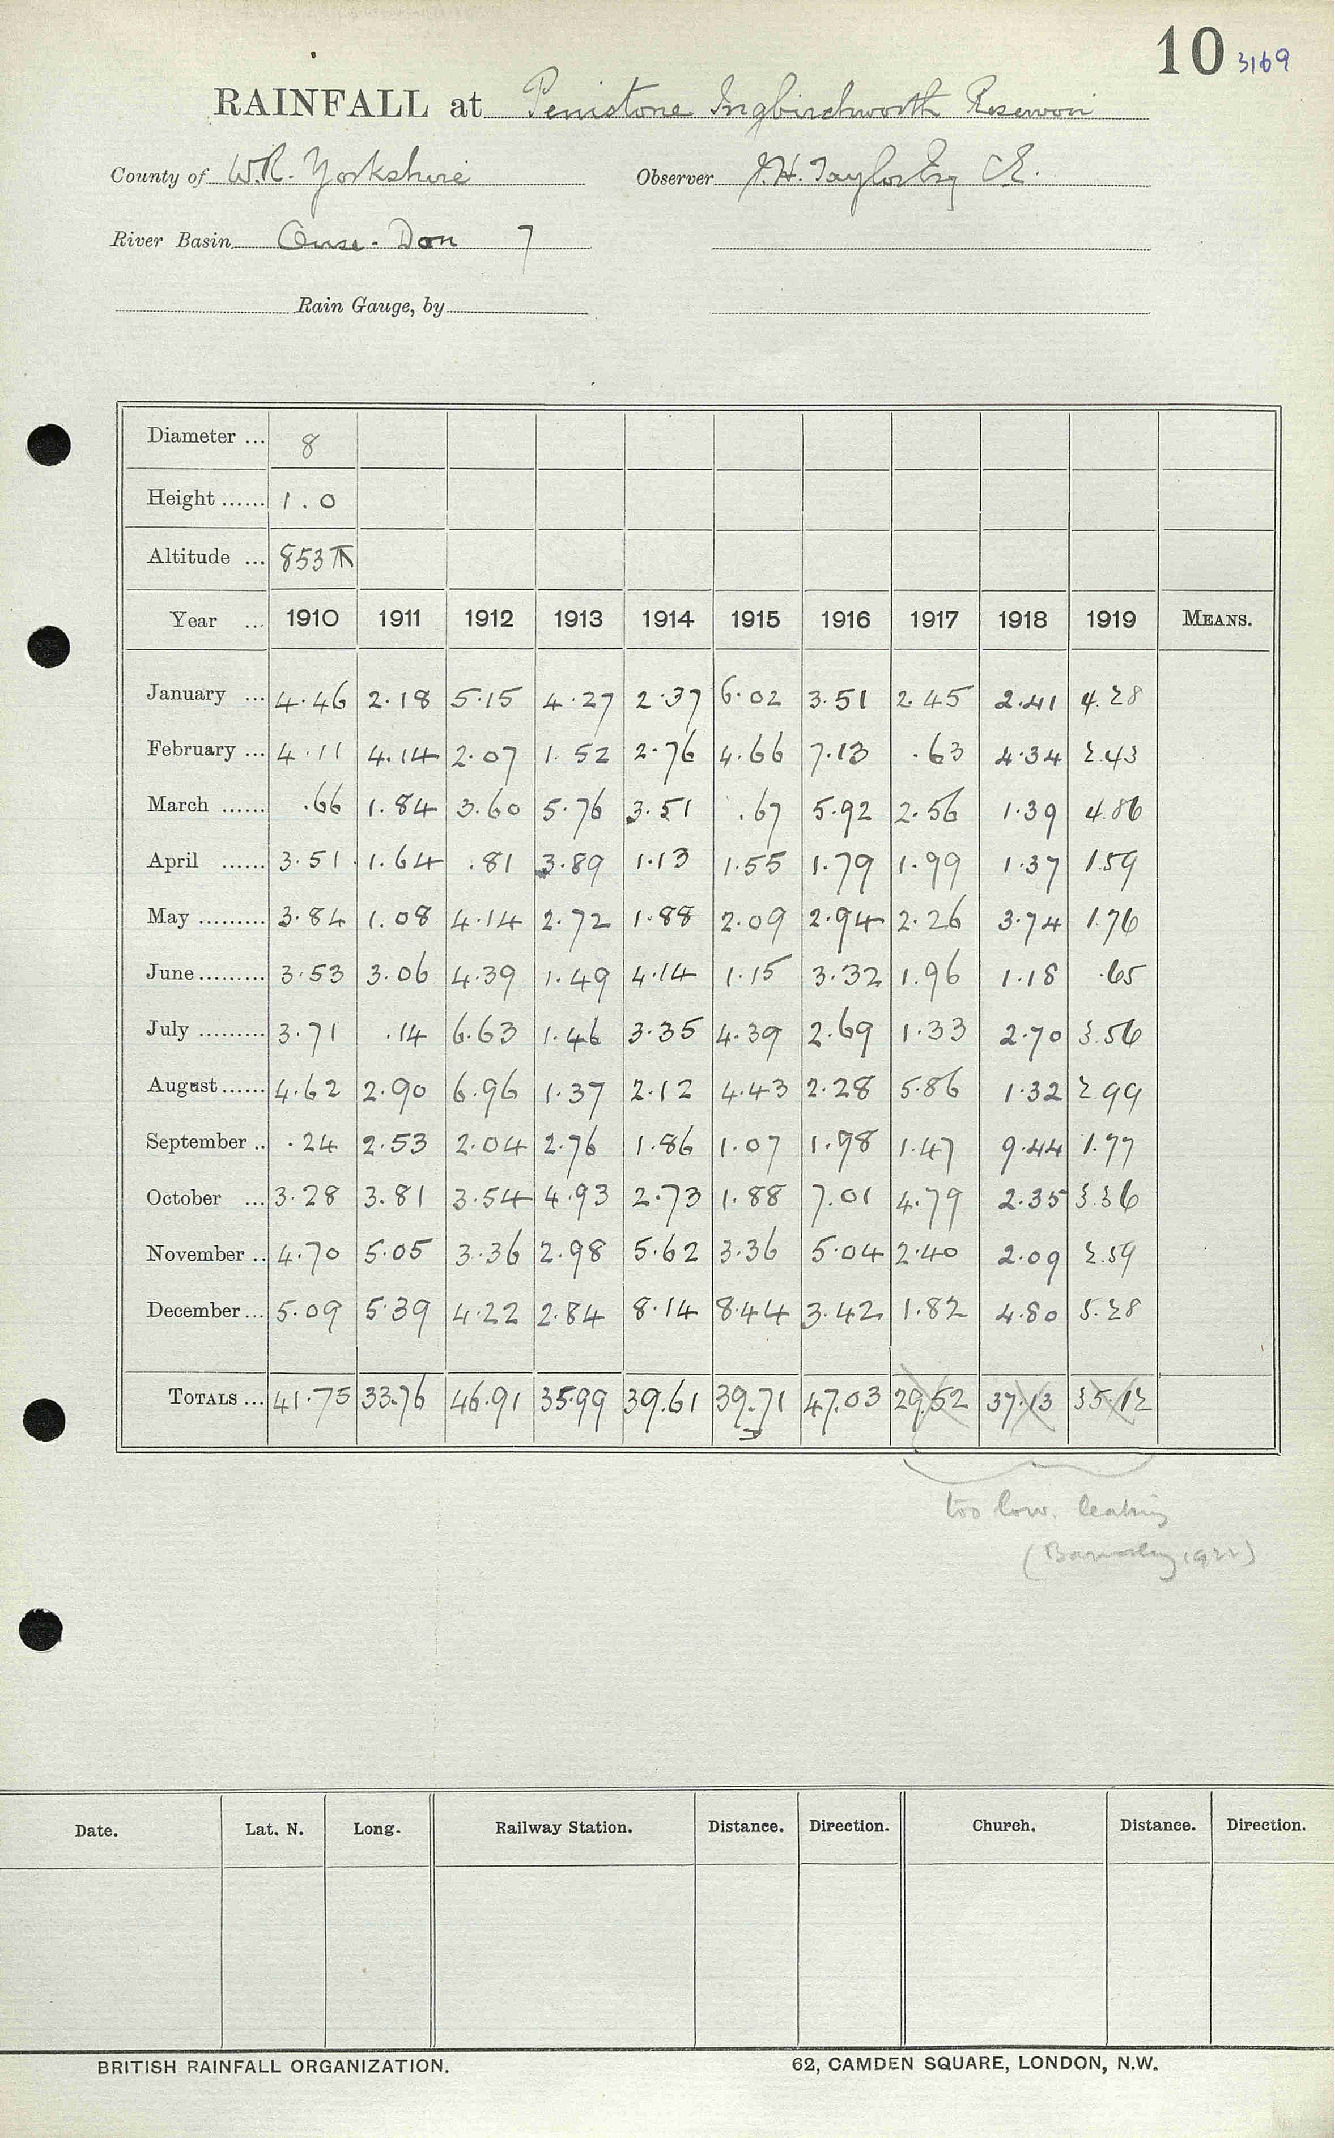 10 3169
RAINFALL at Penistone Ingbirchworth Reservoir
County of W.R. Yorkshire Observer J.H. Taylor Esq C.E.
River Basin Ouse. Don 7
Rain Gauge, by
Diameter ... 8
Height ...... 1.0
Altitude ... 853
Year ... 1910 1911 1912 1913 1914 1915 1916 1917 1918 1919 MEANS.
January ... 4.46 2.18 5.15 4.27 2.37 6.02 3.51 2.45 2.41 4.28
February ... 4.11 4.14 2.07 1.52 2.76 4.66 7.13 .63 4.34 2.43
March ...... .66 1.84 3.60 5.76 3.51 .67 5.92 2.56 1.39 4.86
April ...... 3.51 1.64 .81 3.89 1.13 1.55 1.79 1.99 1.37 1.59
May ......... 3.84 1.08 4.14 2.72 1.88 2.09 2.94 2.26 3.74 1.76
June ......... 3.53 3.06 4.39 1.49 4.14 1.15 3.32 1.96 1.18 .65
July ......... 3.71 .14 6.63 1.46 3.35 4.39 2.69 1.33 2.70 3.56
August ...... 4.62 2.90 6.96 1.37 2.12 4.43 2.28 5.86 1.32 2.99
September .. .24 2.53 2.04 2.76 1.86 1.07 1.98 1.47 9.44 1.77
October ... 3.28 3.81 3.54 4.93 2.73 1.88 7.01 4.79 2.35 3.36
November .. 4.70 5.05 3.36 2.98 5.62 3.36 5.04 2.40 2.09 2.59
December ... 5.09 5.39 4.22 2.84 8.14 8.44 3.42 1.82 4.80 5.28
TOTALS ... 41.75 33.76 46.91 35.99 39.61 39.71 47.03 29.52 37.13 35.12
too low. leaking
(Barnsley 1922)
Date. Lat. N. Long. Railway Station. Distance. Direction. Church. Distance. Direction.
BRITISH RAINFALL ORGANIZATION. 62, CAMDEN SQUARE, LONDON, N.W.